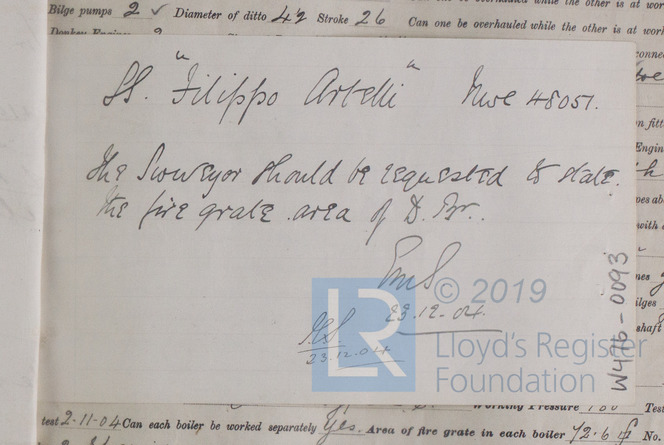 Bilge pumps 2 ✓ Diameter of ditto 4½ Stroke 26 Can one be overhauled while the other is at work
Donkey Engines 2
SS. "Filippo Artelli" Nwc 48051.
The Surveyor should be requested to state
the fire grate area of D. Br..
23.12.04
23.12.04
W476-0093
LR © 2019
Lloyd's Register
Foundation
Working Pressure
test 2-11-04 Can each boiler be worked separately Yes. Area of fire grate in each boiler 72.6 No.